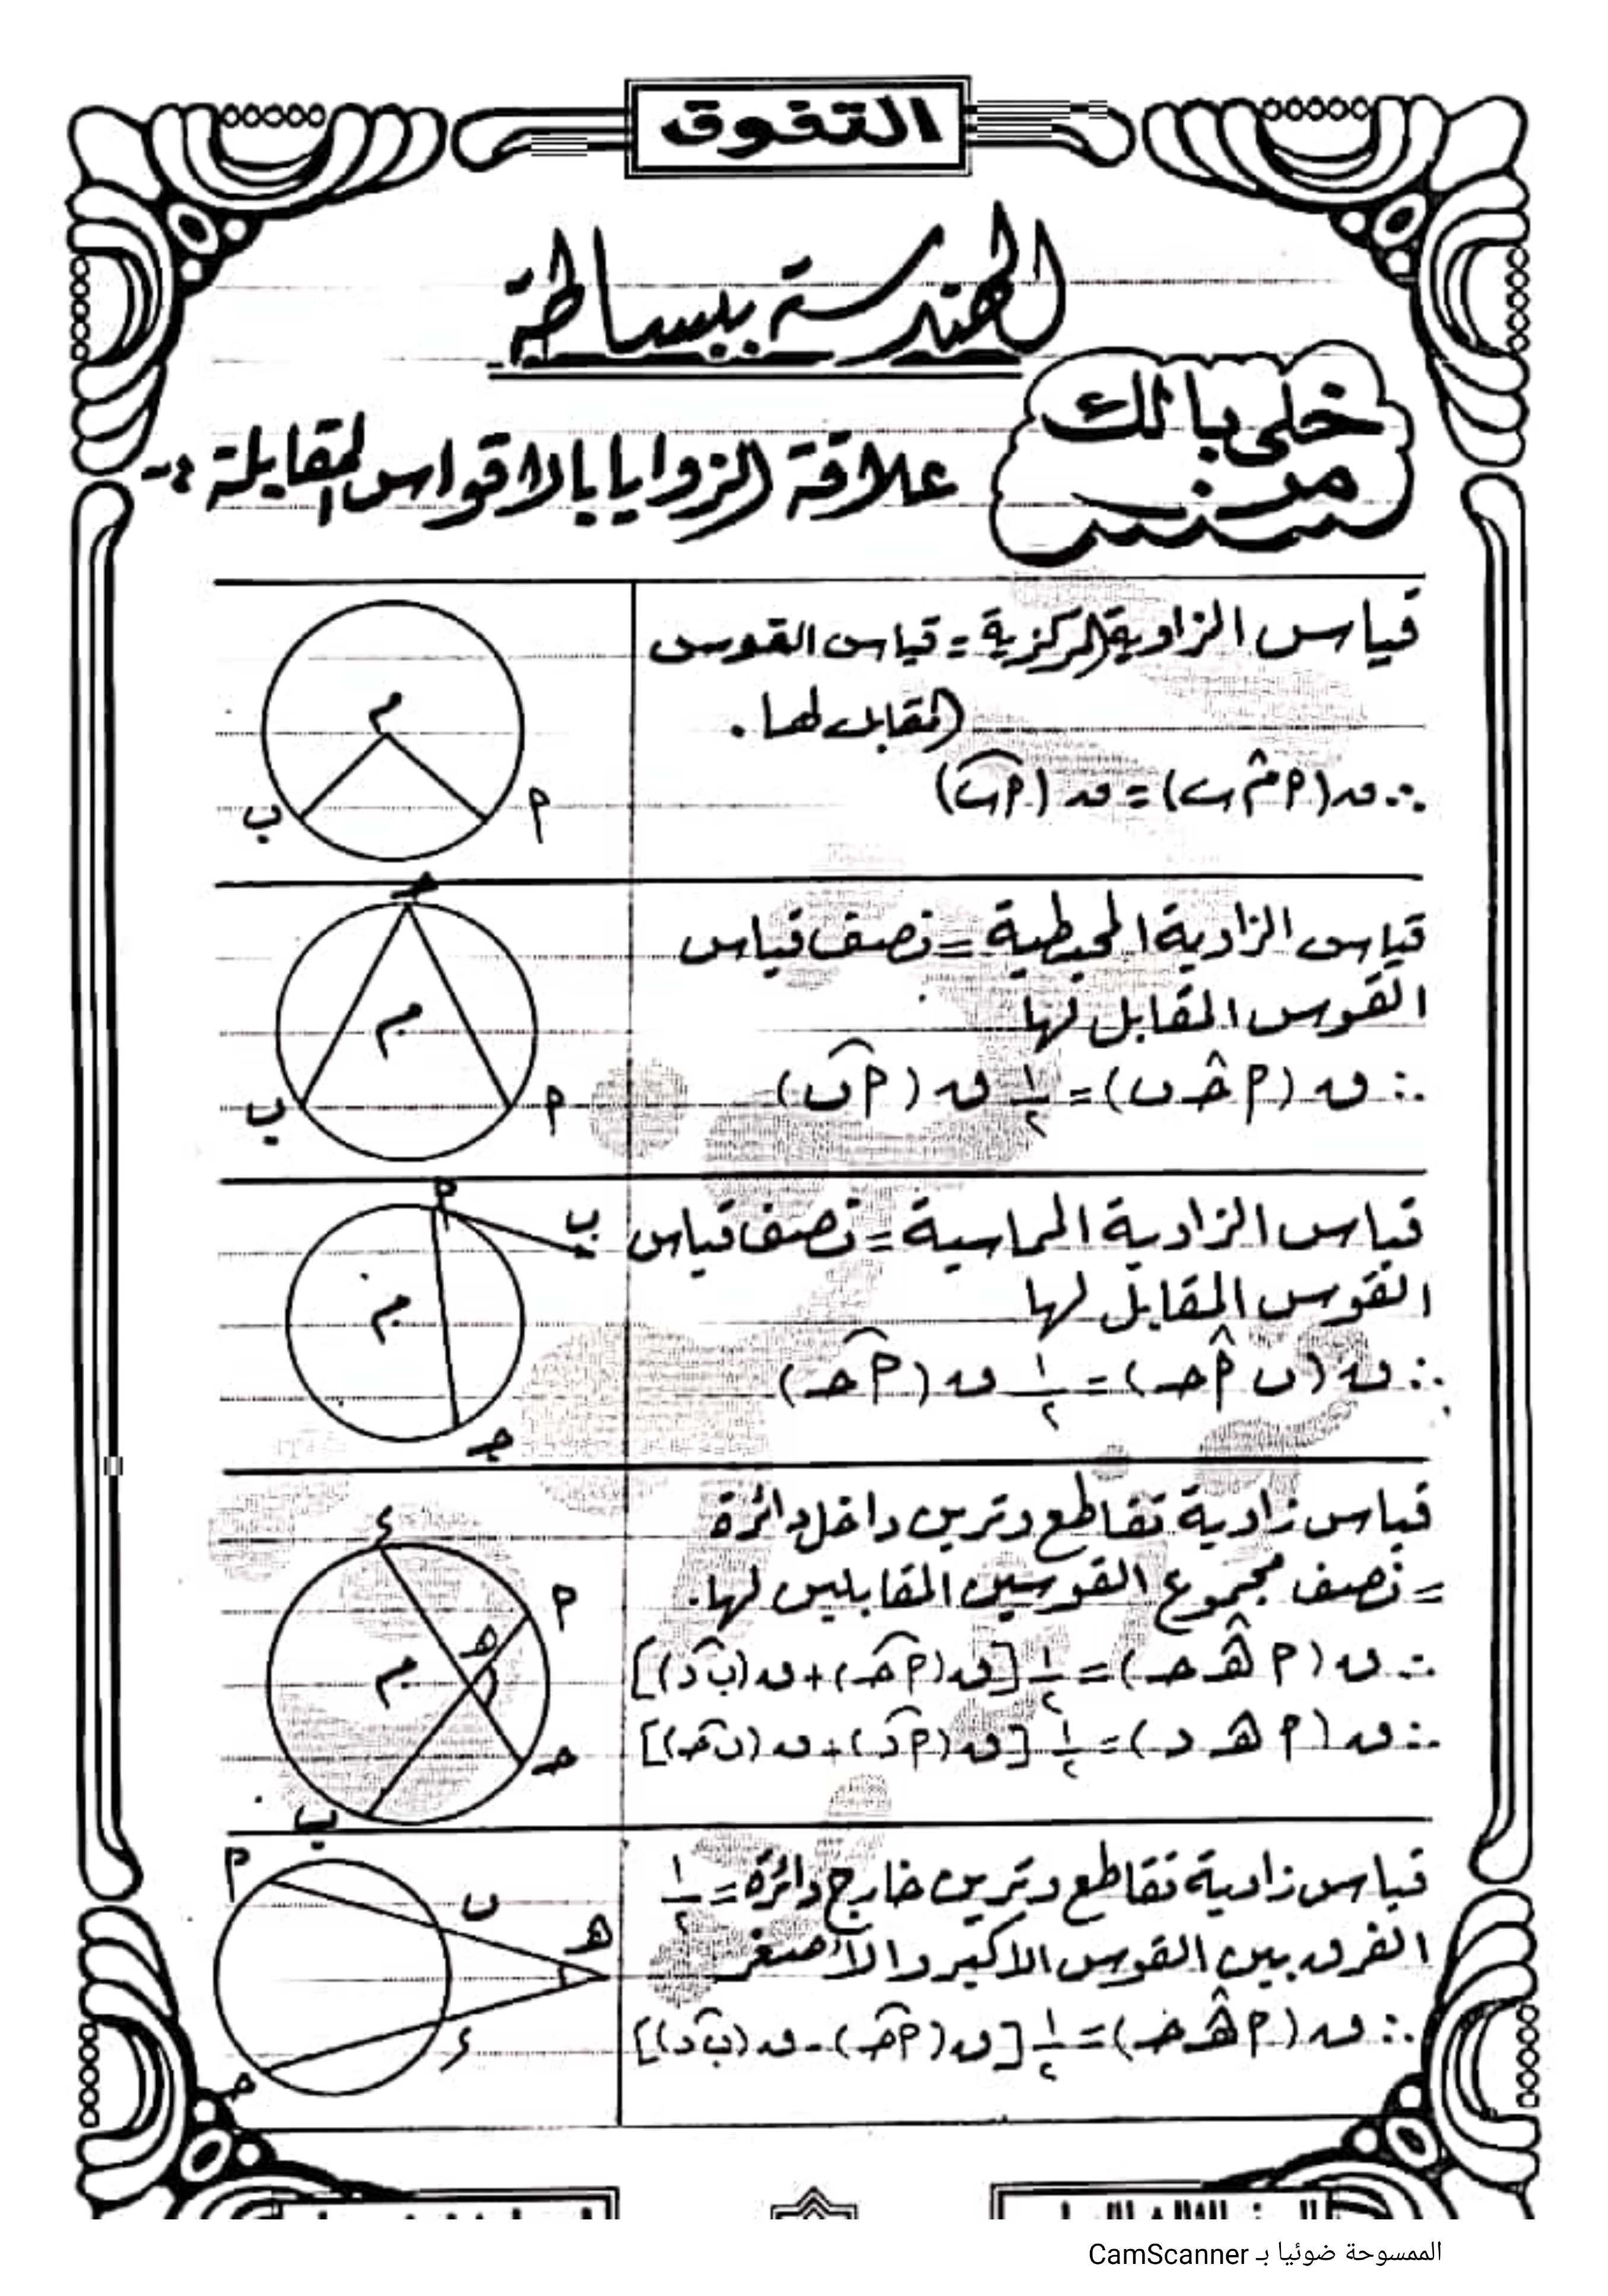 التفوق
الهندسة ببساطة
خلى بالك
من
علاقة الزوايا بالاقواس المقابلة :-
قياس الزاوية المركزية = قياس القوس
المقابل لها .
∴ ق (م̂ ب) = ق (أب)
م
ب
أ
قياس الزاوية المحيطية = نصف قياس
القوس المقابل لها
∴ ق (أ حـ̂ ب) = ١/٢ ق (أب)
حـ
م
ب
أ
قياس الزاوية المماسية = نصف قياس
القوس المقابل لها
∴ ق (ب أ̂ حـ) = ١/٢ ق (أحـ)
أ
ب
م
جـ
قياس زاوية تقاطع وترين داخل دائرة
= نصف مجموع القوسين المقابلين لها.
∴ ق (أ هـ̂ حـ) = ١/٢ [ق (أحـ) + ق (بد)]
∴ ق (أ هـ د) = ١/٢ [ق (أد) + ق (بحـ)]
ء
أ
هـ
م
حـ
ب
قياس زاوية تقاطع وترين خارج دائرة = ١/٢
الفرق بين القوس الاكبر والأصغر
∴ ق (أ هـ̂ حـ) = ١/٢ [ق (أحـ) - ق (بد)]
أ
ب
هـ
ء
حـ
الممسوحة ضوئيا بـ CamScanner